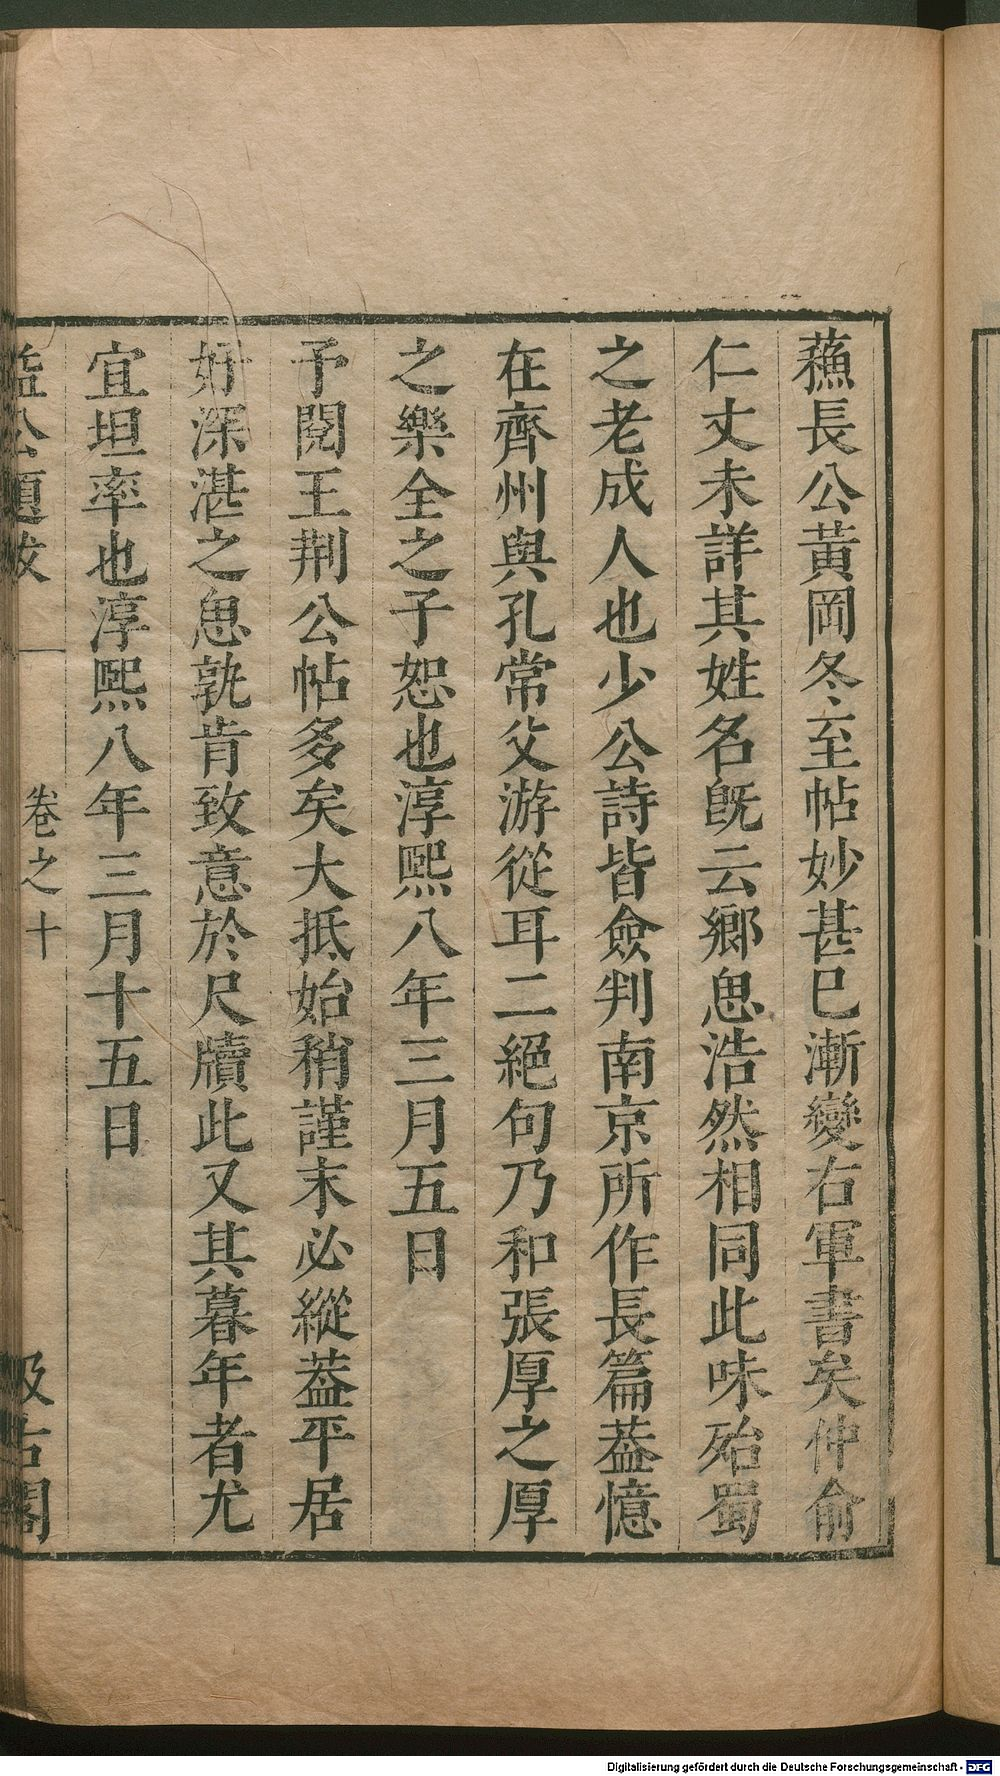 蘓長公黃岡冬至帖妙甚已漸變右軍書矣仲俞
仁丈未詳其姓名旣云鄉思浩然相同此味殆蜀
之老成人也少公詩皆僉判南京所作長篇葢憶
在齊州與孔常父游從耳二絕句乃和張厚之厚
之樂全之子恕也淳熙八年三月五日
予閱王荆公帖多矣大抵始稍謹末必縱葢平居
好深湛之思孰肯致意於尺牘此又其暮年者尤
宜坦率也淳熙八年三月十五日
益公題跋
卷之十
汲古閣
Digitalisierung gefördert durch die Deutsche Forschungsgemeinschaft - DFG